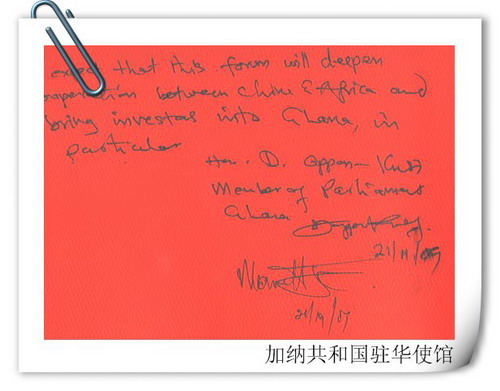 expect that this forum will deepen
cooperation between China & Africa and
bring investors into Ghana, in
particular
Hon. D. Oppon-
Member of Parliament
Ghana
21/11/
21/11/07
加纳共和国驻华使馆